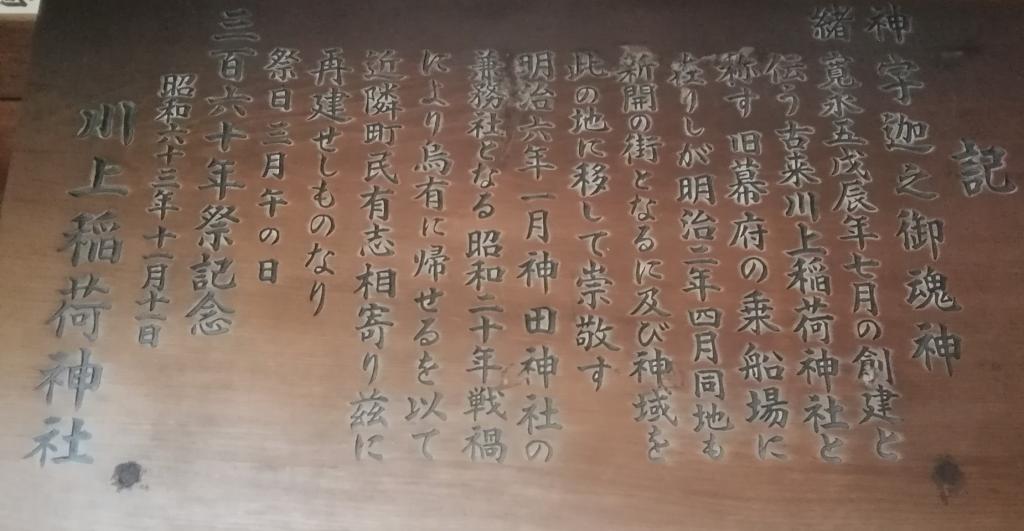 記
神 字迦之御魂神
緒 寛永五戊辰年七月の創建と
伝う古来川上稲荷神社と
称す 旧幕府の乗船場に
在りしが明治二年四月同地も
新開の街となるに及び神域を
此の地に移して崇敬す
明治六年一月神田神社の
兼務社となる昭和二十年戦禍
により烏有に帰せるを以て
近隣町民有志相寄り茲に
再建せしものなり
祭日三月午の日
三百六十年祭記念
昭和六十三年十一月十一日
川上稲荷神社